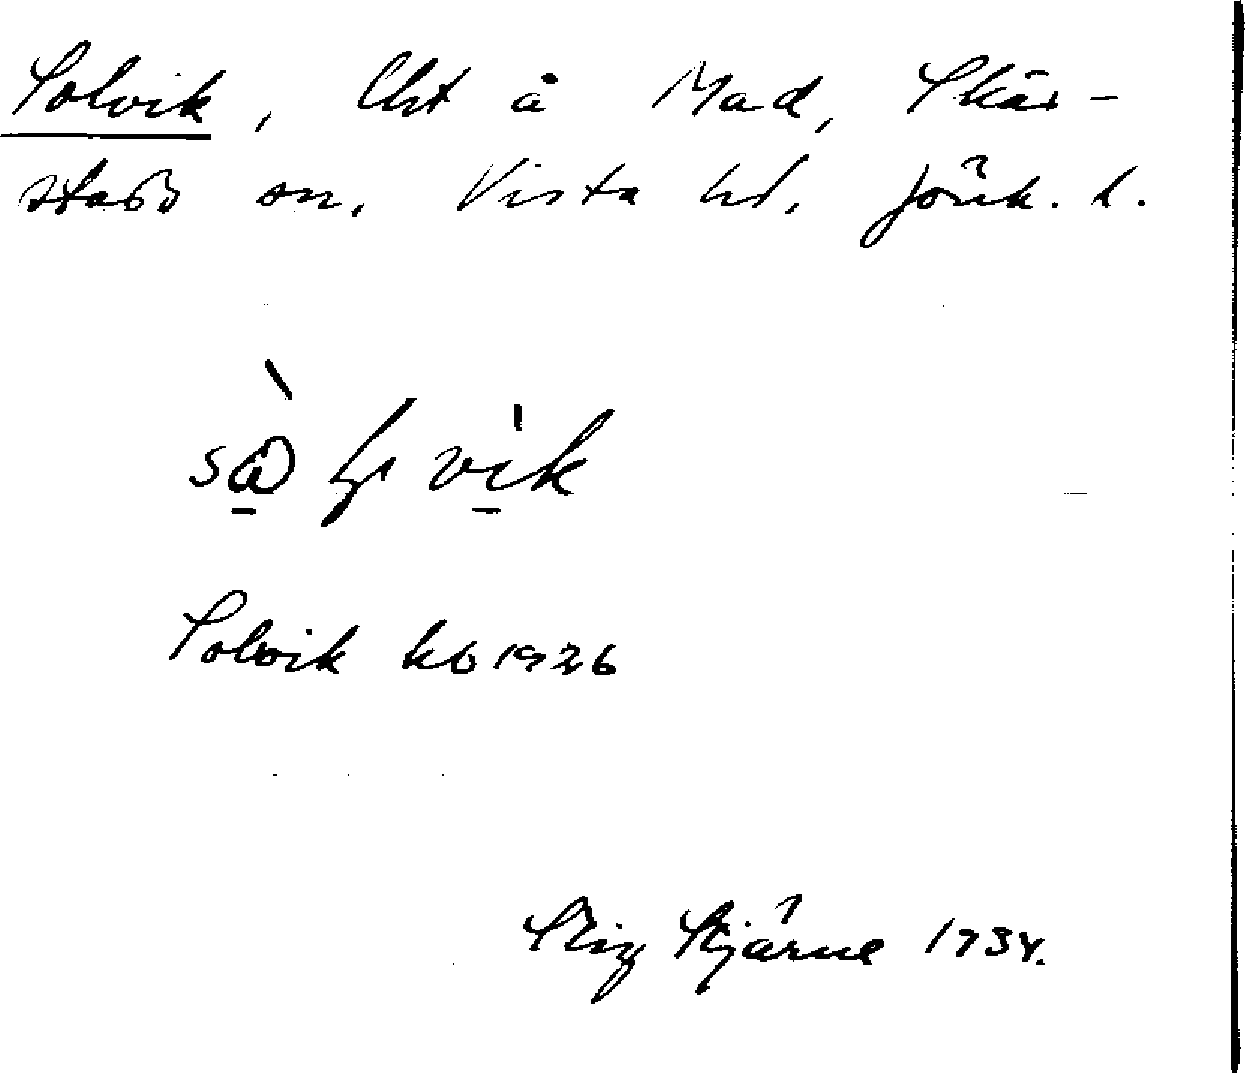 Solvik, lht å Mad, Skär-
stads sn. Vista hd. Jönk. l.
Solvik kb 1926
Stig Stjärne 1934.